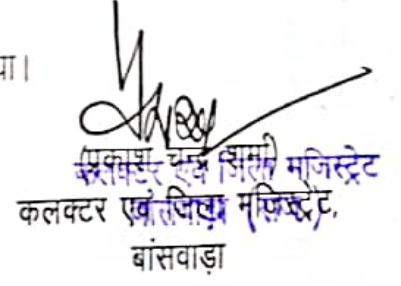 या।
(प्रकाश चन्द्र शर्मा)
कलक्टर एवं जिला मजिस्ट्रेट
कलक्टर एवं जिला मजिस्ट्रेट,
बांसवाड़ा